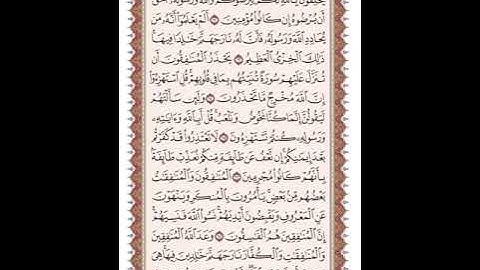 يَحْلِفُونَ بِٱللَّهِ لَكُمْ لِيُرْضُوكُمْ وَٱللَّهُ وَرَسُولُهُۥٓ أَحَقُّ
أَن يُرْضُوهُ إِن كَانُوا۟ مُؤْمِنِينَ ۝ أَلَمْ يَعْلَمُوٓا۟ أَنَّهُۥ مَن
يُحَادِدِ ٱللَّهَ وَرَسُولَهُۥ فَأَنَّ لَهُۥ نَارَ جَهَنَّمَ خَٰلِدًا فِيهَا
ذَٰلِكَ ٱلْخِزْىُ ٱلْعَظِيمُ ۝ يَحْذَرُ ٱلْمُنَٰفِقُونَ أَن
تُنَزَّلَ عَلَيْهِمْ سُورَةٌ تُنَبِّئُهُم بِمَا فِى قُلُوبِهِمْ قُلِ ٱسْتَهْزِءُوٓا۟
إِنَّ ٱللَّهَ مُخْرِجٌ مَّا تَحْذَرُونَ ۝ وَلَئِن سَأَلْتَهُمْ
لَيَقُولُنَّ إِنَّمَا كُنَّا نَخُوضُ وَنَلْعَبُ قُلْ أَبِٱللَّهِ وَءَايَٰتِهِۦ
وَرَسُولِهِۦ كُنتُمْ تَسْتَهْزِءُونَ ۝ لَا تَعْتَذِرُوا۟ قَدْ كَفَرْتُم
بَعْدَ إِيمَٰنِكُمْ إِن نَّعْفُ عَن طَآئِفَةٍ مِّنكُمْ نُعَذِّبْ طَآئِفَةًۢ
بِأَنَّهُمْ كَانُوا۟ مُجْرِمِينَ ۝ ٱلْمُنَٰفِقُونَ وَٱلْمُنَٰفِقَٰتُ
بَعْضُهُم مِّنۢ بَعْضٍ يَأْمُرُونَ بِٱلْمُنكَرِ وَيَنْهَوْنَ
عَنِ ٱلْمَعْرُوفِ وَيَقْبِضُونَ أَيْدِيَهُمْ نَسُوا۟ ٱللَّهَ فَنَسِيَهُمْ
إِنَّ ٱلْمُنَٰفِقِينَ هُمُ ٱلْفَٰسِقُونَ ۝ وَعَدَ ٱللَّهُ ٱلْمُنَٰفِقِينَ
وَٱلْمُنَٰفِقَٰتِ وَٱلْكُفَّارَ نَارَ جَهَنَّمَ خَٰلِدِينَ فِيهَا هِىَ